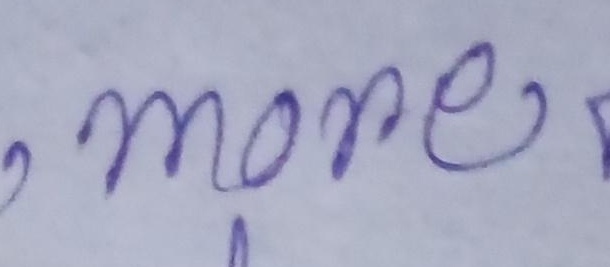 , more,